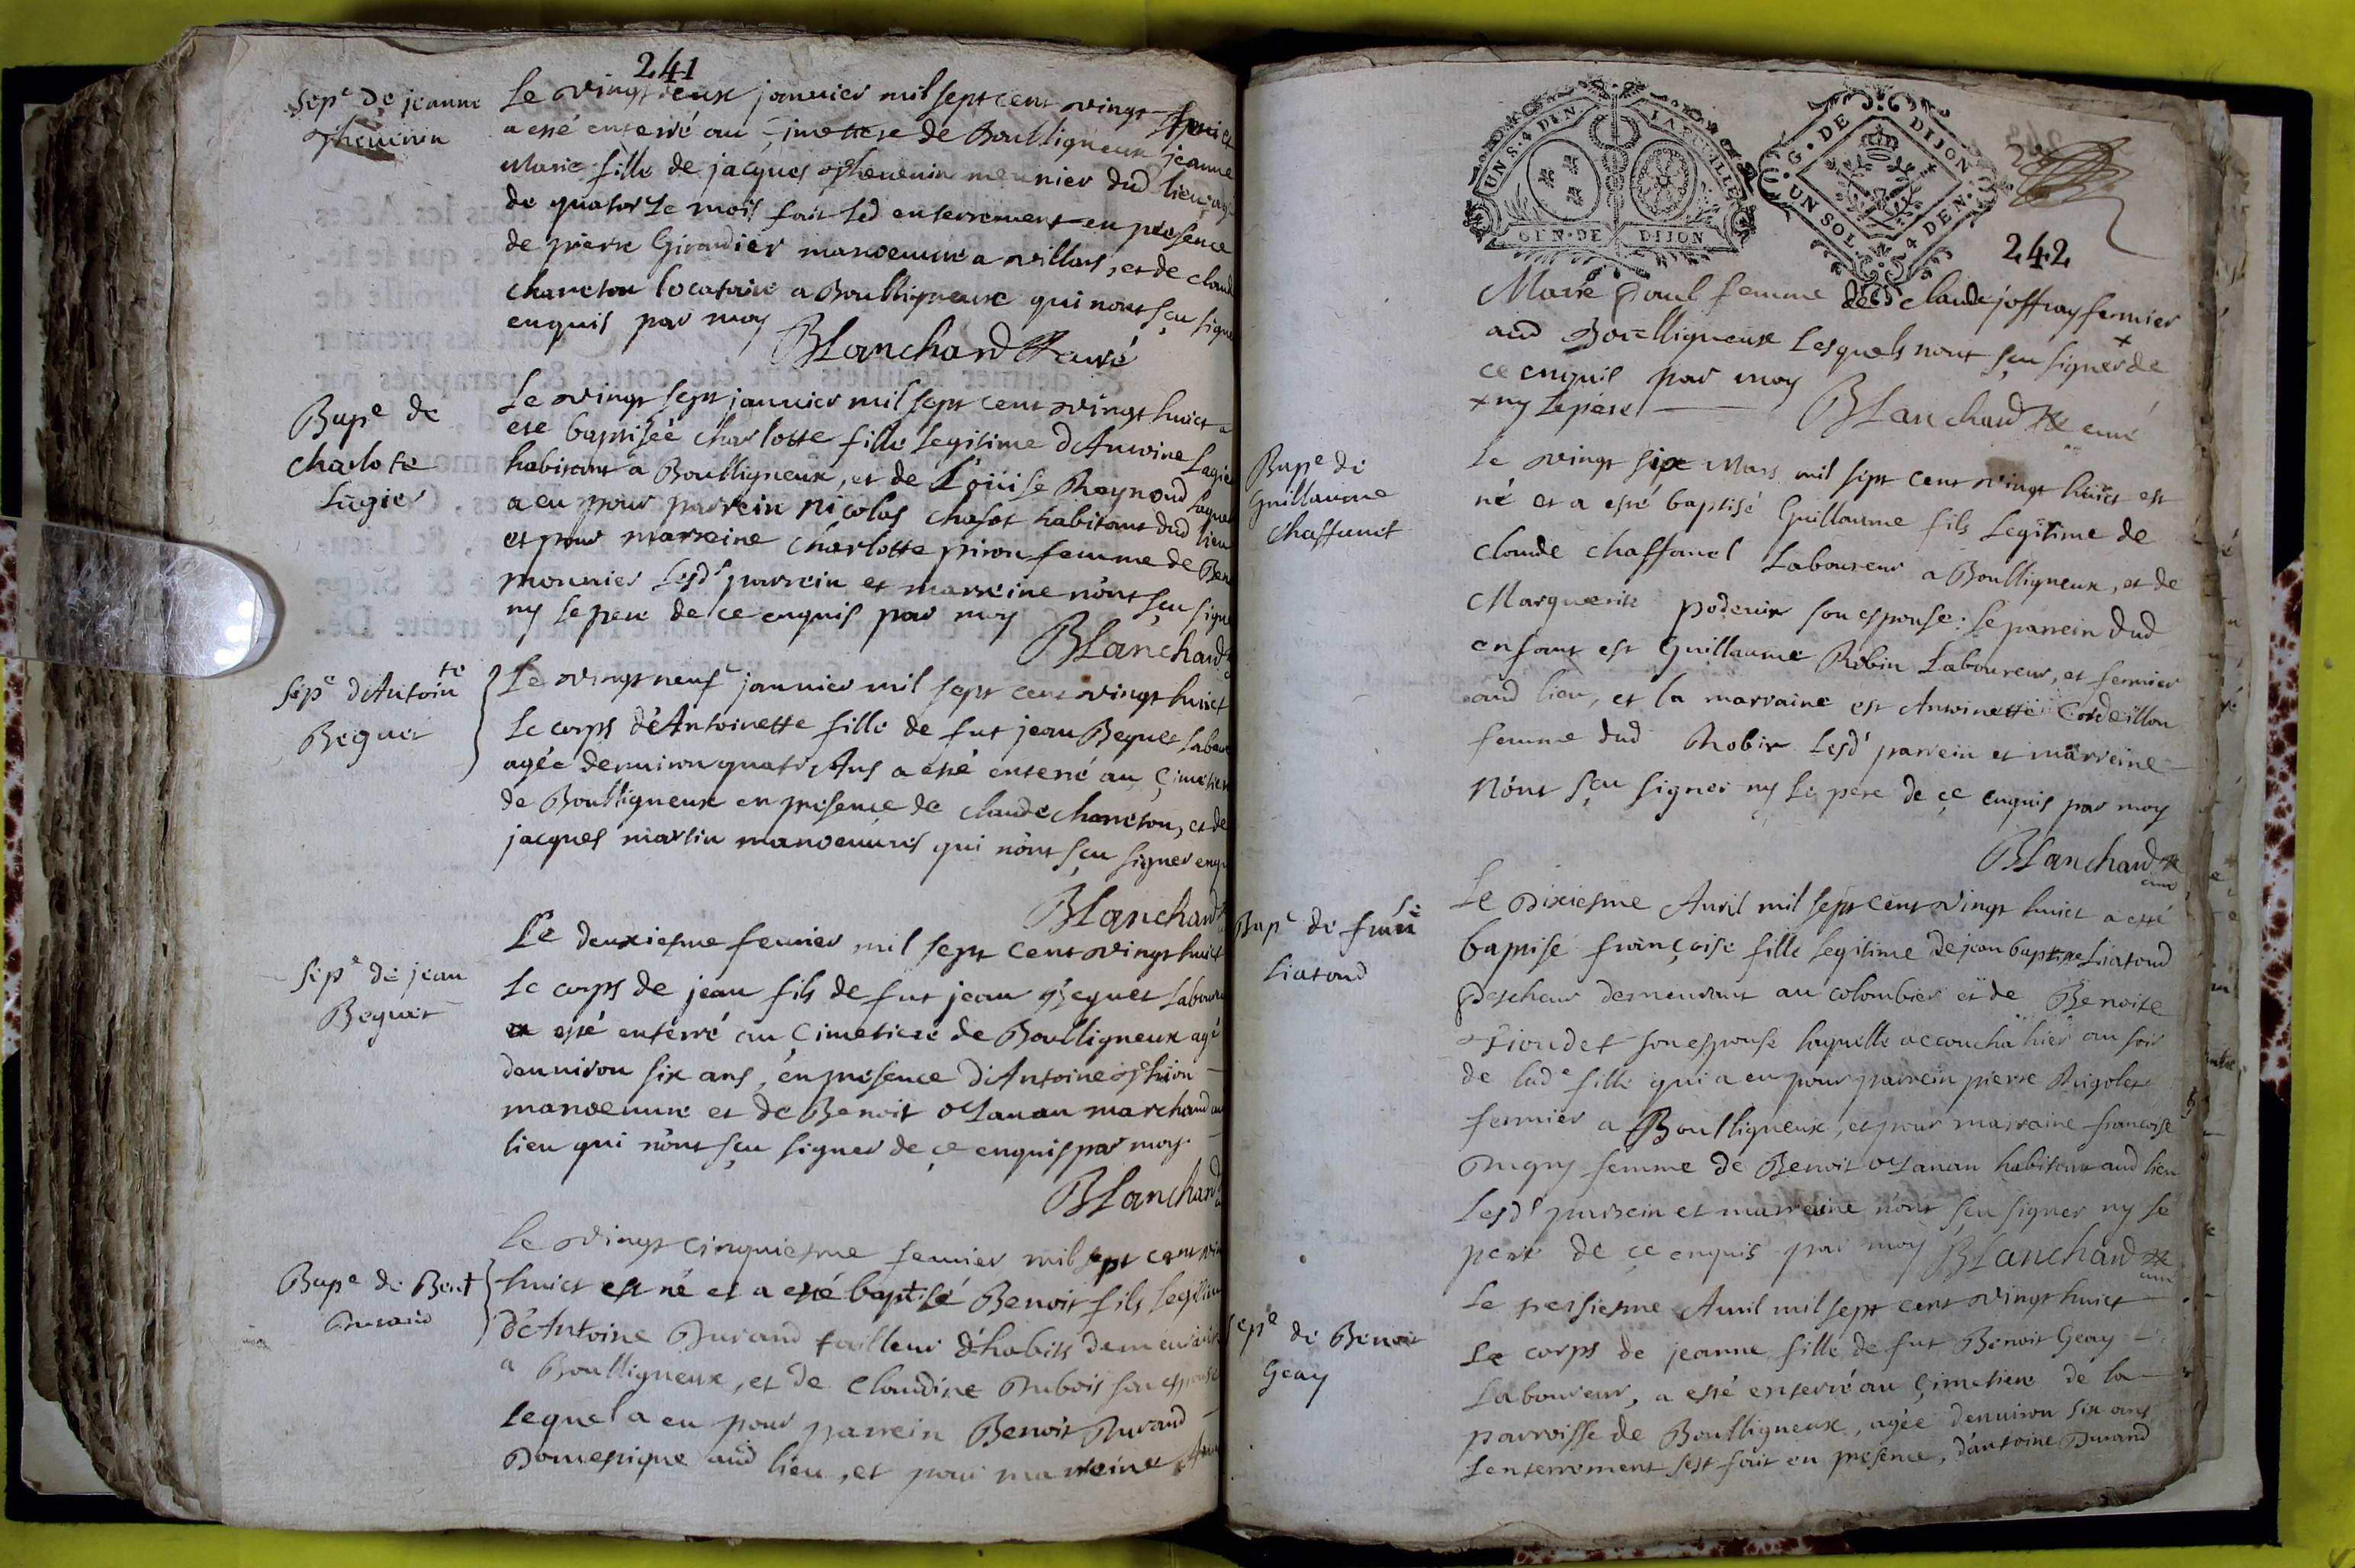 241
Sep.e de jeanne
Thevenin
Le vingt deux janvier mil sept cent vingt huict
a esté enterré au çimettere de Boulligneux jeanne
Marie fille de jacques Thevenin meunier dud lieu agé
de quatorze mois fait led enterrement en presence
de pierre Girandier manoeuvre a villars, et de claude
chaneton locataire a Boulligneux qui n'ont sçu signe
enquis par moy
Blanchard curé
Bap.e de
charlote
Lugier
Le vingt sept janvier mil sept cent vingt huict a
ete baptisée charlotte fille legitime d'Antoine Lagier
habitant a Boulligneux, et de Loüise Reynoud laquel
a eu pour parrein Nicolas chasot habitant dud lieu
et pour marreine charlotte piron femme de Ben
monnier lesd.s parrein et marreine n'ont sçu signe
ny le pere de ce enquis par moy
Blanchard
Sep.e d'Antoin.te
Beguet
Le vingt neuf janvier mil sept cent vingt huict
Le corps d'Antoinette fille de fut jean Beguet labou
agée denviron quatr Ans a esté enterré au çimetier
de Boulligneux en presence de claude chaneton, et de
jacques martin manoeuvres qui n'ont sçu signer enqu
Blanchard
Sep.e de jean
Beguet
Le deuxiesme fevrier mil sept cent vingt huict
Le corps de jean fils de fut jean Beguet labour
a esté enterré au çimetiere de Boulligneux agé
denviron six ans, en presence d'Antoine Thion
manoeuvre et de Benoit Manan marchand au
lieu qui n'ont sçu signer de çe enquis par moy.
Blanchard
Bap.e de Ben.t
Durand
Le vingt cinquiesme fevrier mil sept cent vin
huict est né et a esté baptisé Benoit fils legitim
d'Antoine Durand tailleur d'habits demeurant
a Boulligneux, et de Claudine Dubois son espouse
lequel a eu pour parrein Benoit Durand
Domestique aud lieu, et pour marreine
UN S. 4 DEN. LA FEUILLE
GEN. DE DIJON
G. DE DIJON
UN SOL. 4 DEN.
242
Marie Paul femme de claude joffray fermier
aud Boulligneux lesquels n'ont sçu signer + de
ce enquis par moy
+ ny le pere
Blanchard curé
Bap.e de
Guillaume
Chaffanet
Le vingt six Mars mil sept cent vingt huict est
né et a esté baptisé Guillaume fils Legitime de
claude chaffanel Laboureur a Boulligneux, et de
Marguerite podevin son espouse: le parrein dud
enfant est Guillaume Robin Laboureur, et fermier
aud lieu, et la marraine est Antoinette Cordeillon
femme dud Robin lesd.s parrein et marreine
N'ont sçu signer ny le pere de çe enquis par moy
Blanchard
curé
Bap.e de fran.se
Liatoud
Le Dixiesme Avril mil sept cent vingt huict a esté
baptisé françoise fille legitime de jean baptiste Liatoud
Pescheur demeurant au colombier et de Benoite
Tioudet son espouse laquelle accoucha hier au soir
de lad.e fille qui a eu pour parrein pierre Rigolet
fermier a Boulligneux, et pour marraine francoise
Dugny femme de Benoit Manan habitant aud lieu
lesd.s parrein et marreine n'ont sçu signer ny le
pere de çe enquis par moy Blanchard
curé
Sep.e de Benoit
Geay
Le treisiesme Avril mil sept cent vingt huict
Le corps de jeanne fille de fut Benoit Geay
Laboureur, a esté enterré au çimetiere de la
parroisse de Boulligneux, agée denviron six ans
Lenterrement s'est fait en presence, d'antoine Durand